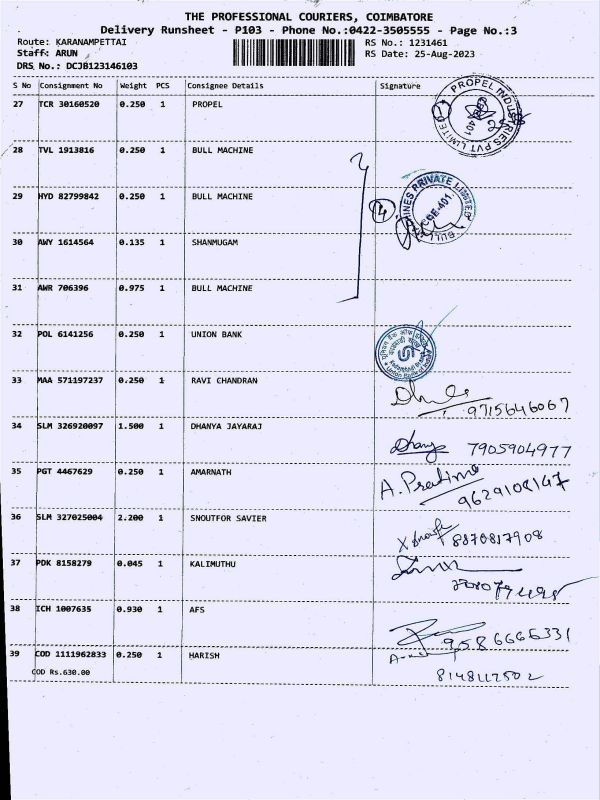 THE PROFESSIONAL COURIERS, COIMBATORE
Delivery Runsheet - P103 - Phone No.:0422-3505555 - Page No.:3
Route: KARANAMPETTAI RS No.: 1231461
Staff: ARUN RS Date: 25-Aug-2023
DRS No.: DCJB123146103
S No Consignment No Weight PCS Consignee Details Signature
27 TCR 30160520 0.250 1 PROPEL
PROPEL INDUSTRIES PVT LIMITED
401
28 TVL 1913816 0.250 1 BULL MACHINE
29 HYD 82799842 0.250 1 BULL MACHINE
4
BULL MACHINES PRIVATE LIMITED
CBE-401
30 AWY 1614564 0.135 1 SHANMUGAM
31 AWR 706396 0.975 1 BULL MACHINE
32 POL 6141256 0.250 1 UNION BANK
33 MAA 571197237 0.250 1 RAVI CHANDRAN
9715646067
34 SLM 326920097 1.500 1 DHANYA JAYARAJ
Dhanya 7905904977
35 PGT 4467629 0.250 1 AMARNATH
A. Prathima
9629108147
36 SLM 327025004 2.200 1 SNOUTFOR SAVIER
8870817908
37 PDK 8158279 0.045 1 KALIMUTHU
38 ICH 1007635 0.930 1 AFS
9586666331
39 COD 1111962833 0.250 1 HARISH
COD Rs.630.00
8148112502